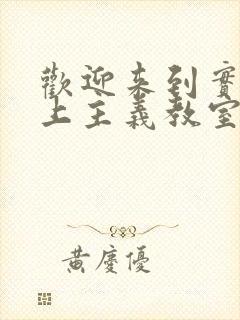 歡迎來到實
上主義教室
黃慶優